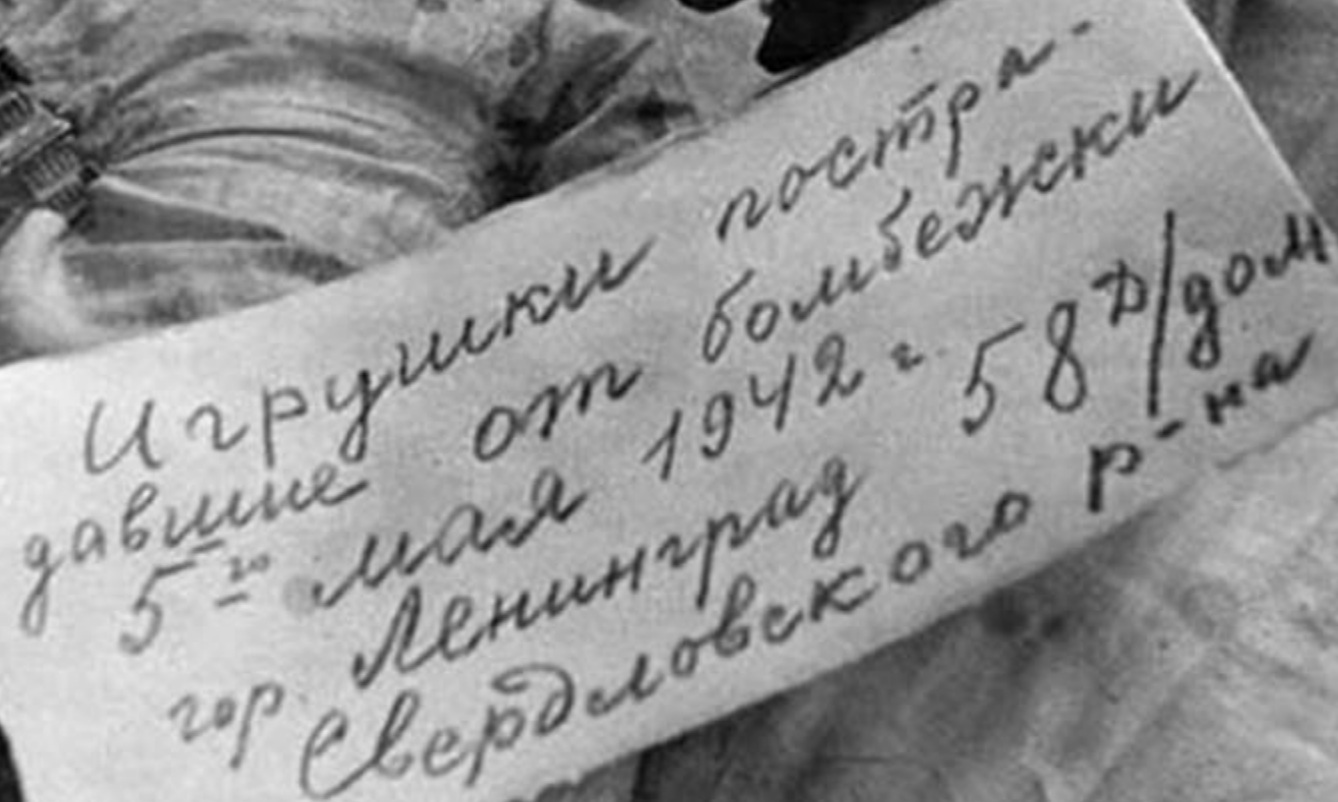 Игрушки постра-
давшие от бомбежки
5го мая 1942 г. 58 д/дом
гор. Ленинград
Свердловского р-на